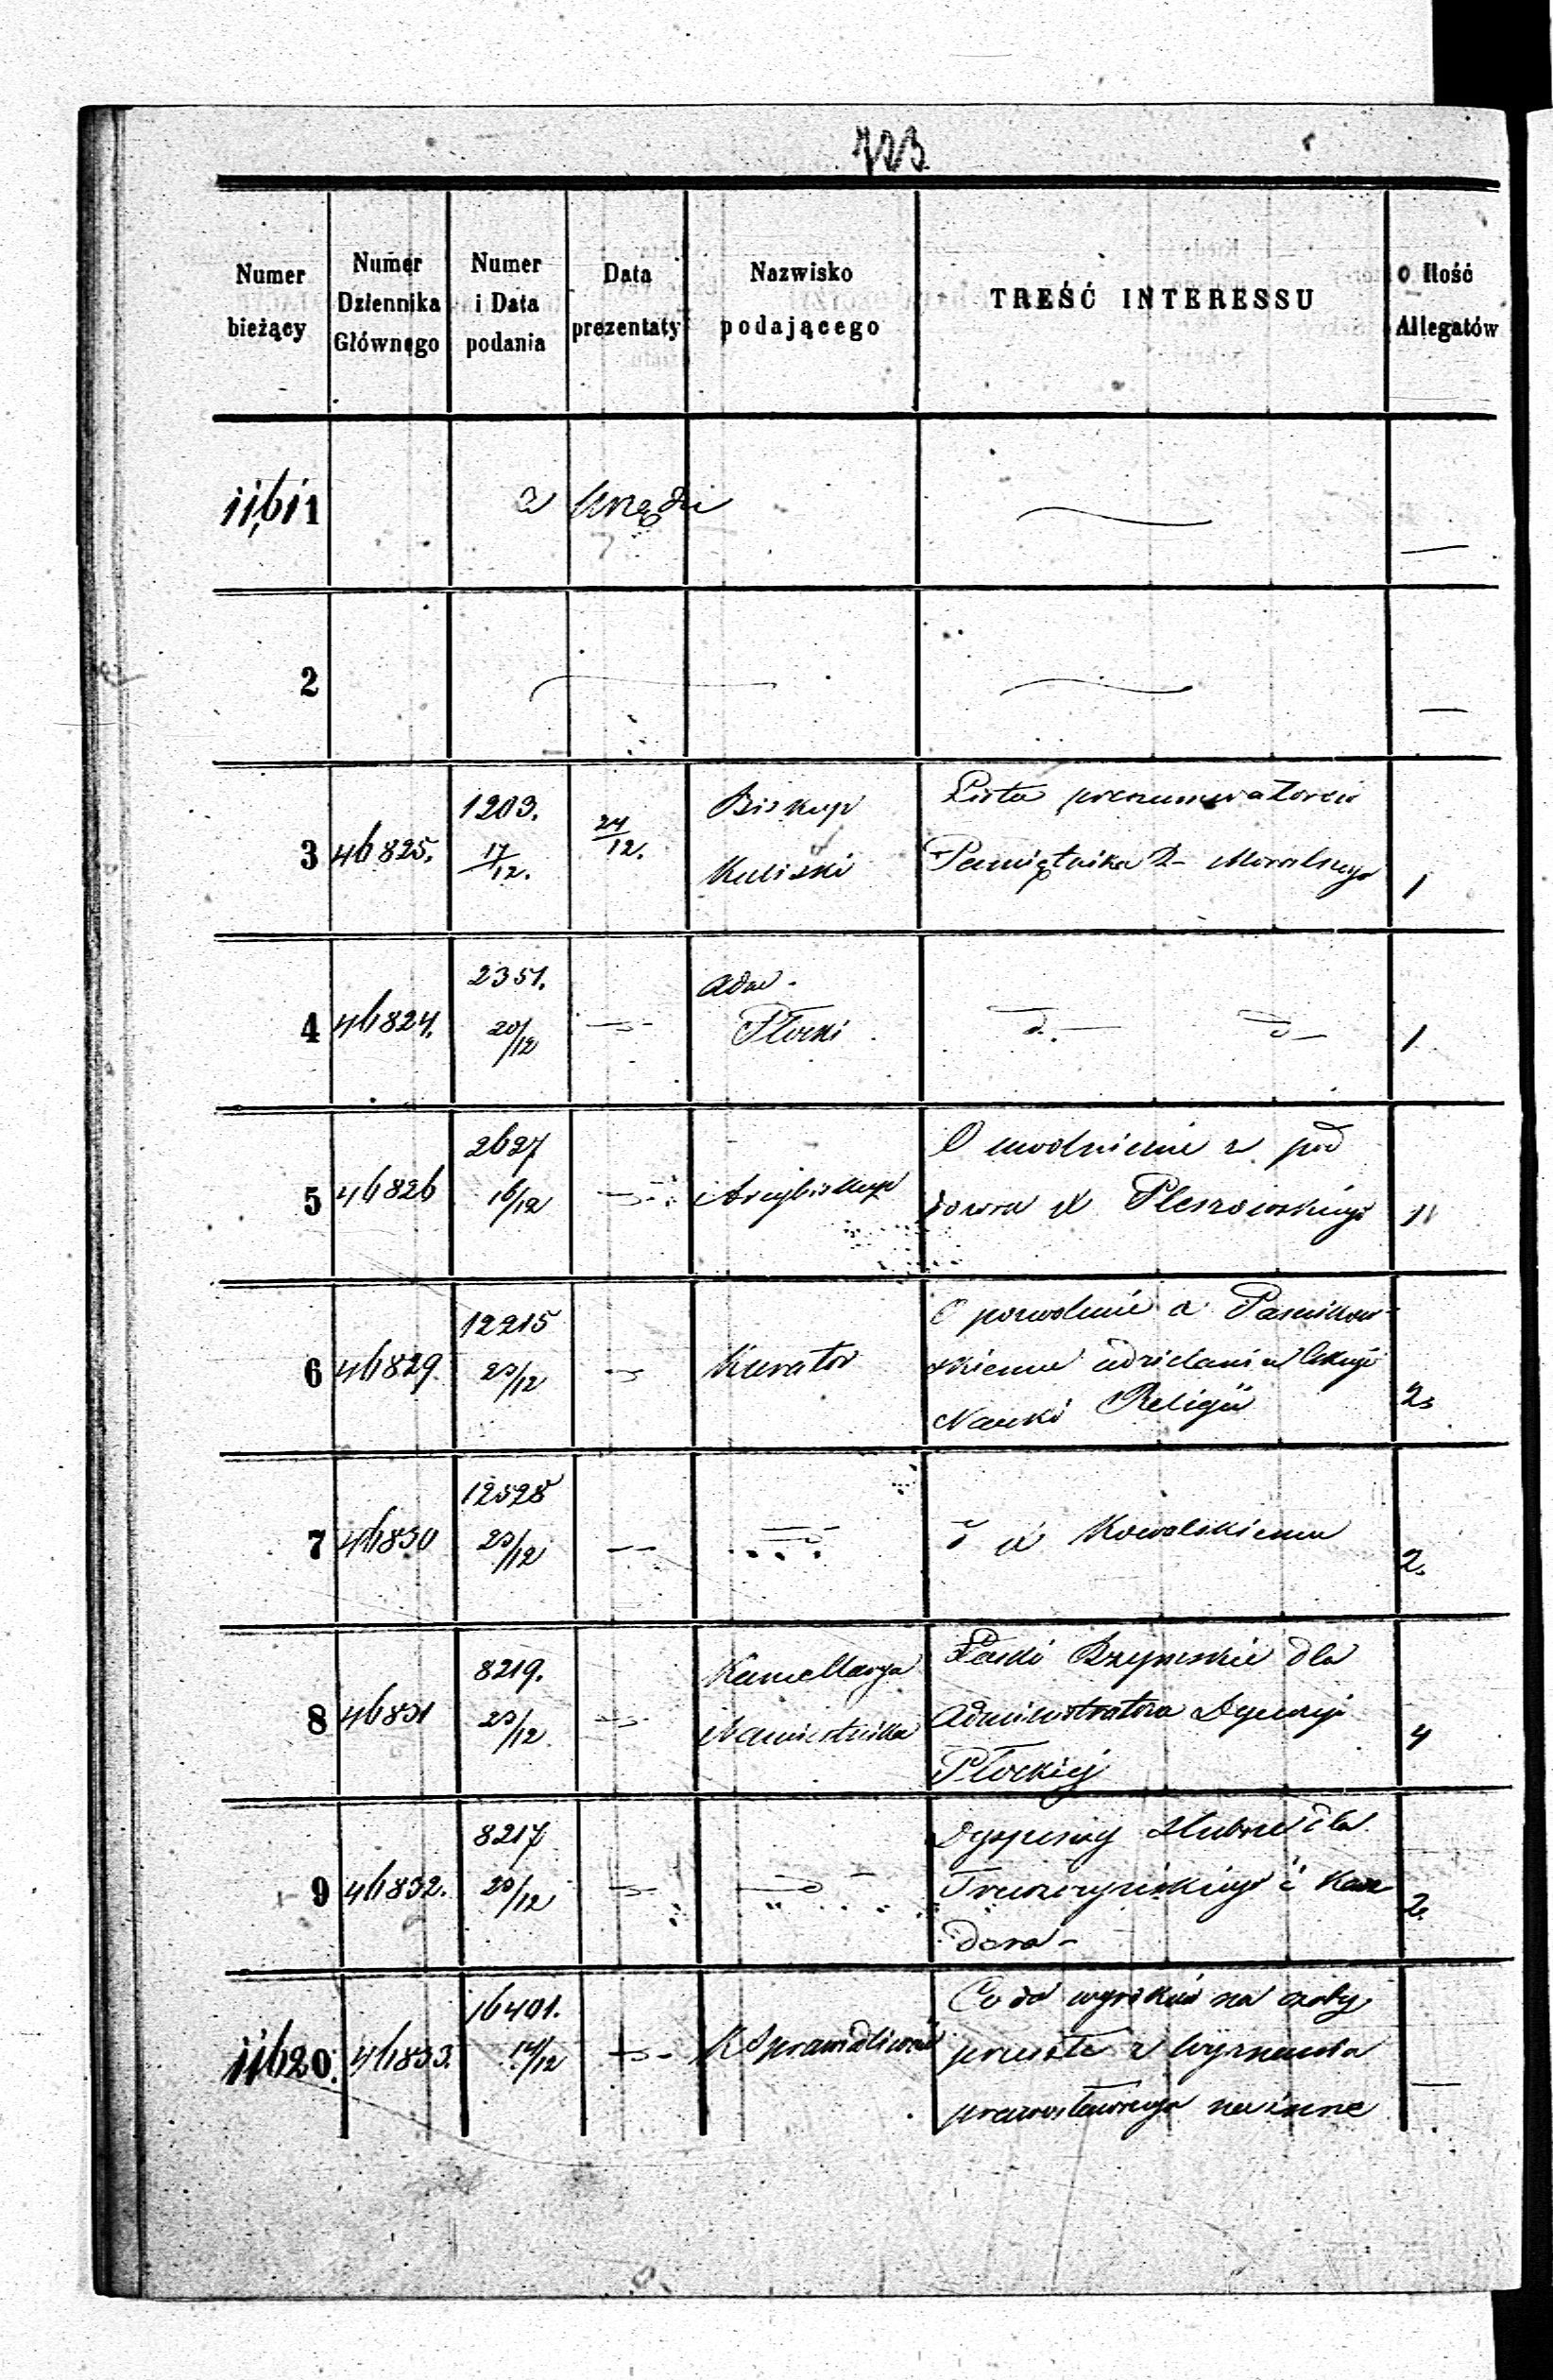 723
Numer bieżący
Numer Dziennika Głównego
Numer i Data podania
Data prezentaty
Nazwisko podającego
TREŚĆ INTERESSU
Ilość Allegatów
11611
z Urzędu
2
3 46825. 1203. 17/12. 24/12.
Biskup
Kaliski
Lista prenumeratorów
Pamiętnika R- Moralnego
1
4 46824. 2351. 20/12
Adm.
Płocki
d. d
1
5 46826 2627 16/12
Arcybiskup
O uwolnienie z pod
dozoru X Pleszowskiego
6 46829. 12215 23/12
Kurator
O pozwolenie
skiemu udzielania lekcyi
Nauki Religii
2
7 46830 12528 23/12
d X Kowalskiemu
2.
8 46831 8219. 23/12
Kancellarya
Namiestnika
Paski Rzymskie dla
Administratora Dyecezyi
Płockiej
4
9 46832. 8217 23/12
Dyspensy ślubne dla
2.
11620. 46833. 16401. 14/12
K Sprawiedliwości
Co do wyroków na osoby
przeszłe z wyznania
prawosławnego na inne